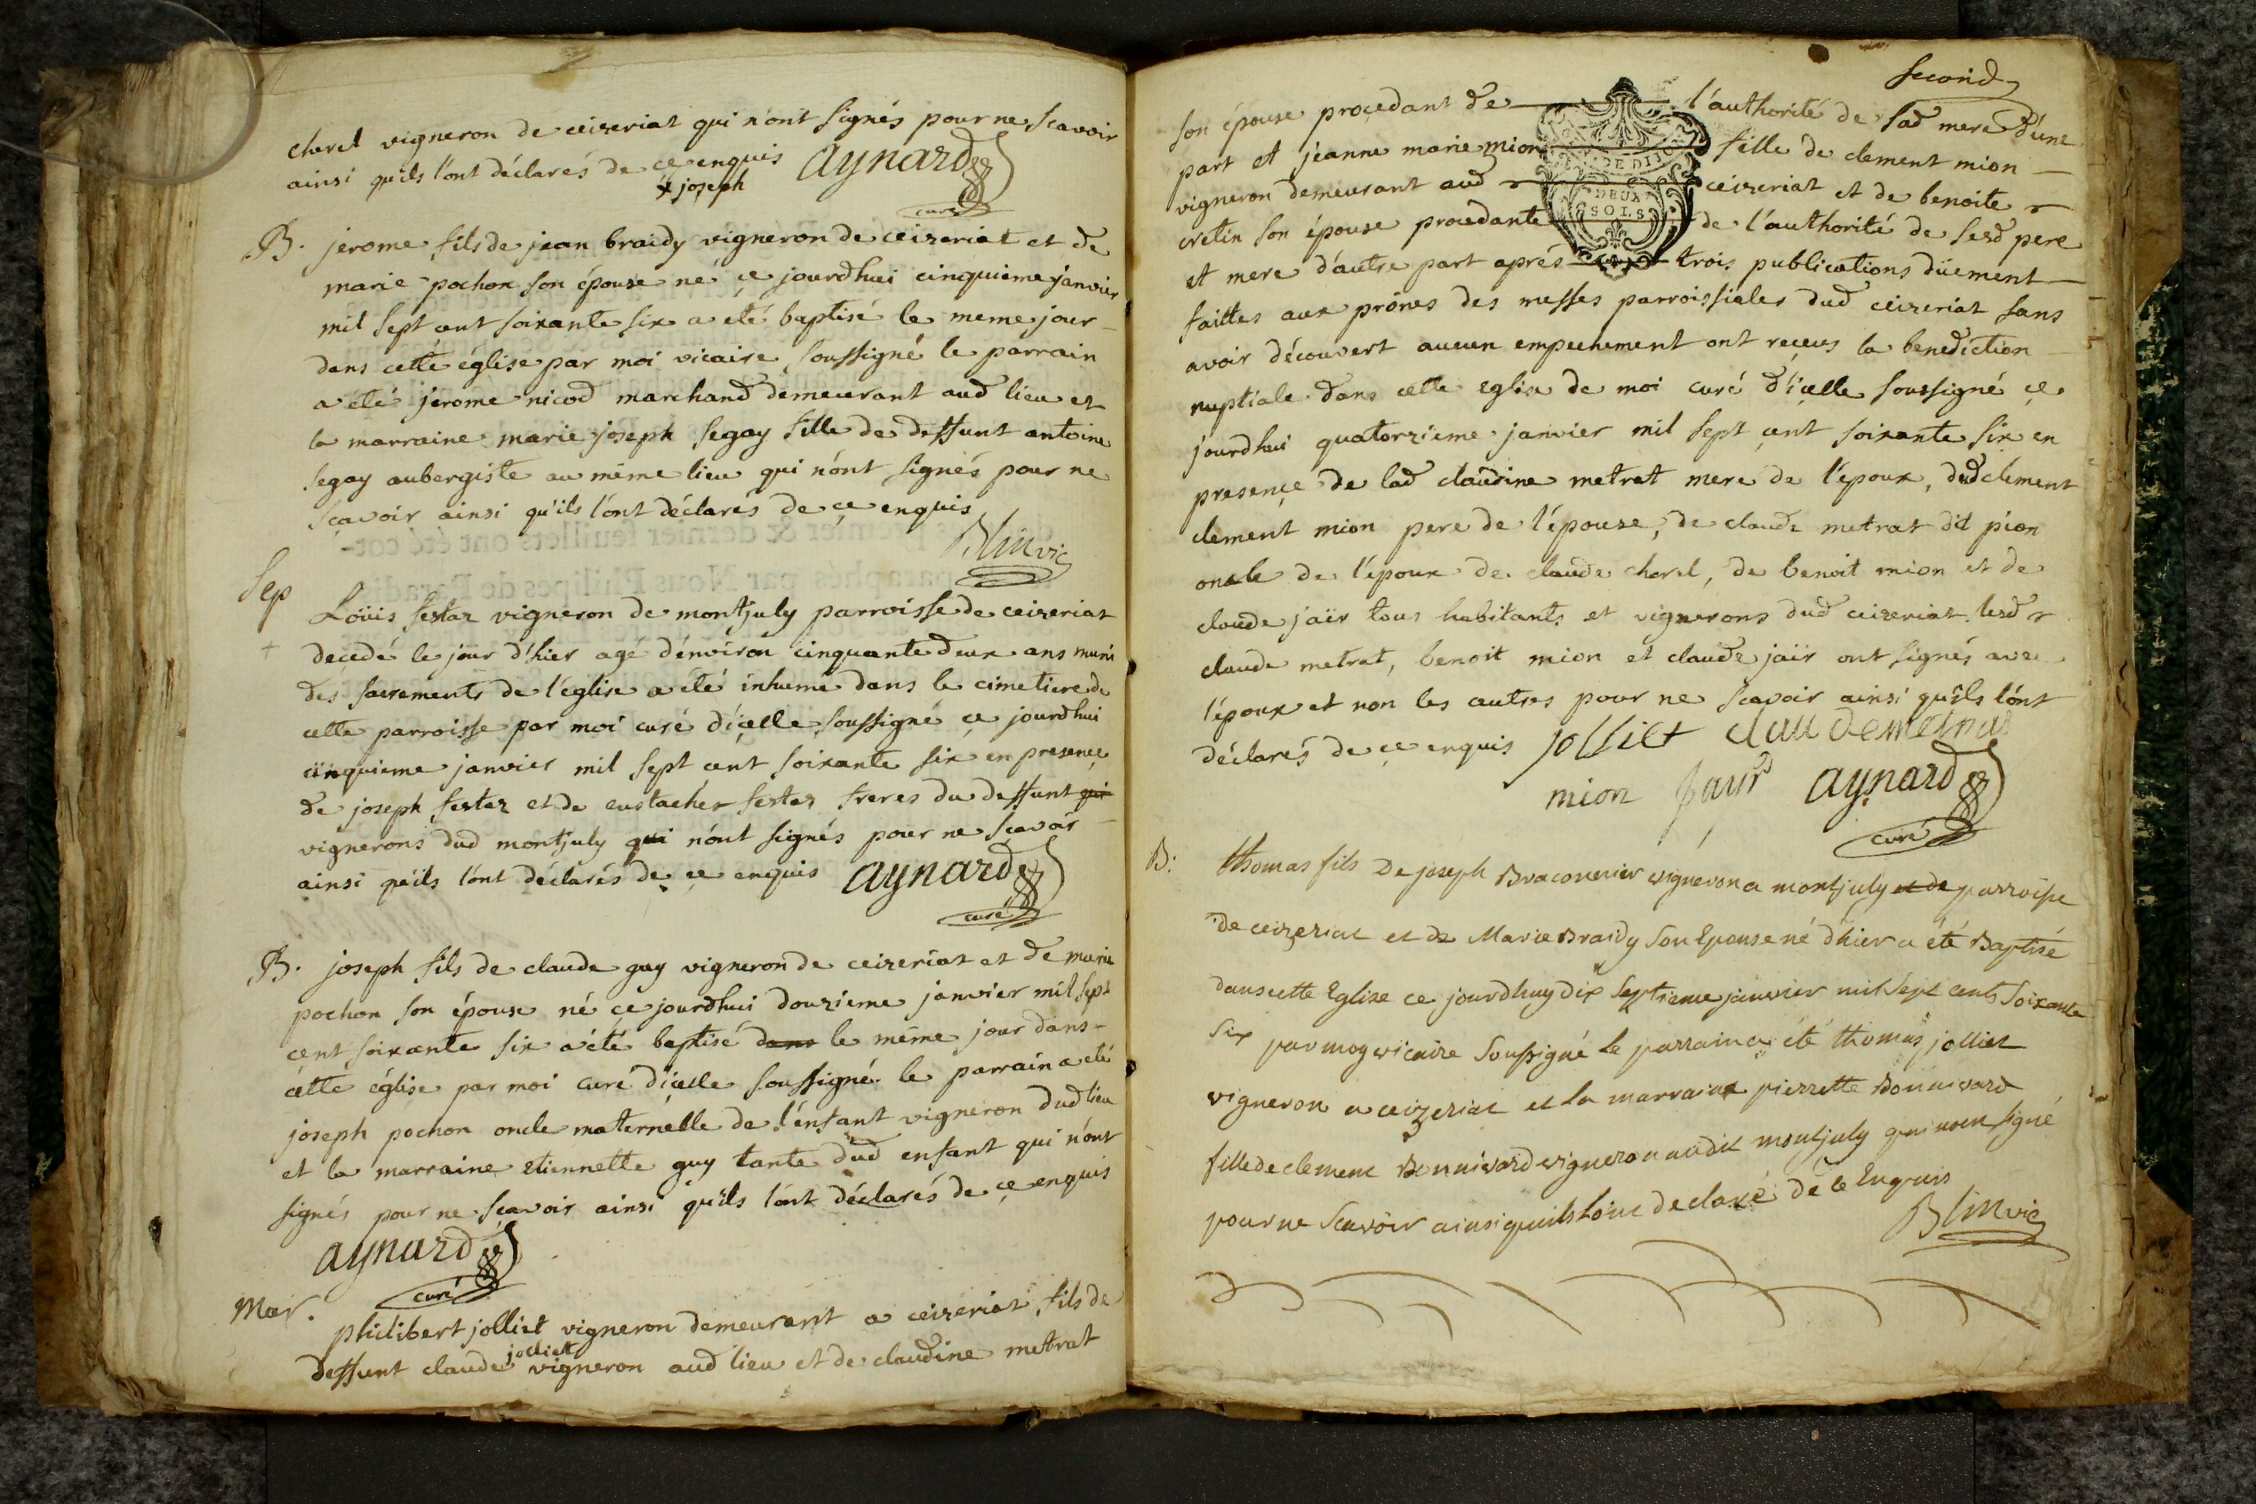 cherel vigneron de ceizeriat qui n'ont signés pour ne scavoir
ainsi qu'ils l'ont déclarés de ce enquis aynard
curé
x joseph
B. jerome fils de jean braidy vigneron de ceizeriat et de
marie pochon son épouse né ce jourdhui cinquieme janvier
mil sept cent soixante six a eté baptisé le meme jour
dans cette église par moi vicaire soussigné le parrain
a eté jerome nicod marchand demeurant aud lieu et
la marraine marie joseph segay fille de deffunt antoine
segay aubergiste au même lieu qui n'ont signés pour ne
scavoir ainsi qu'ils l'ont déclarés de ce enquis
Blin vic
Sep
Loüis festaz vigneron de montjuly parroisse de ceizeriat
decedé le jour d'hier agé d'environ cinquante deux ans muni
des sacrements de l'église a eté inhumé dans le cimetiere de
cette parroisse par moi curé d'icelle soussigné ce jourdhui
cinquieme janvier mil sept cent soixante six en presence
de joseph festaz et de eustache festaz freres du deffunt qui
vignerons dud montjuly qui n'ont signés pour ne scavoir
ainsi qu'ils l'ont declarés de ce enquis aynard
curé
B. joseph fils de claude guy vigneron de ceizeriat et de marie
pochon son épouse né ce jourdhui douzieme janvier mil sept
cent soixante six a été baptisé dans le même jour dans
cette église par moi curé d'icelle soussigné le parrain a eté
joseph pochon oncle maternelle de l'enfant vigneron dud lieu
et la marraine etiennette guy tante dud enfant qui n'ont
signés pour ne scavoir ainsi qu'ils l'ont déclarés de ce enquis
aynard
curé
Mar.
philibert jolliet vigneron demeurant a ceizeriat fils de
jolliet
deffunt claude vigneron aud lieu et de claudine metrat
second
son épouse procedant de l'authorité de sad mere d'une
part et jeanne marie mion fille de clement mion
vigneron demeurant aud ceizeriat et de benoite
cretin son épouse procedante de l'authorité de sesd pere
et mere d'autre part aprés trois publications düement
DE DIJON
DEUX
SOLS
faittes aux prônes des messes parroissiales dud ceizeriat sans
avoir découvert aucun empechement ont reçeus la benediction
nuptiale dans cette eglise de moi curé d'icelle soussigné ce
jourdhui quatorzieme janvier mil sept cent soixante six en
presençe de lad claudine metrat mere de l'époux, dud clement
clement mion pere de l'épouse, de claude metrat dit pion
oncle de l'époux de claude cherel, de benoit mion et de
claude jaïr tous habitants et vignerons dud ceizeriat lesd
claude metrat, benoit mion et claude jaïr ont signés avec
l'époux et non les autres pour ne scavoir ainsi qu'ils l'ont
déclarés de ce enquis jolliet claudemetrat
mion aynard
curé
B:
thomas fils de joseph Braconnier vigneron a montjuly et de parroisse
de ceizeriat et de Marie Braidy son Epouse né d'hier a été Baptisé
dans cette Eglise ce jourdhuy dix septieme janvier mil sept cents soixante
six par moy vicaire soussigné le parrain a été thomas jolliet
vigneron a ceizeriat et la marraine pierrette Bonnivard
fille de clement Bonnivard vigneron audit montjuly qui n'ont signé
pour ne scavoir ainsi quils lont declaré de ce Enquis
Blin vic